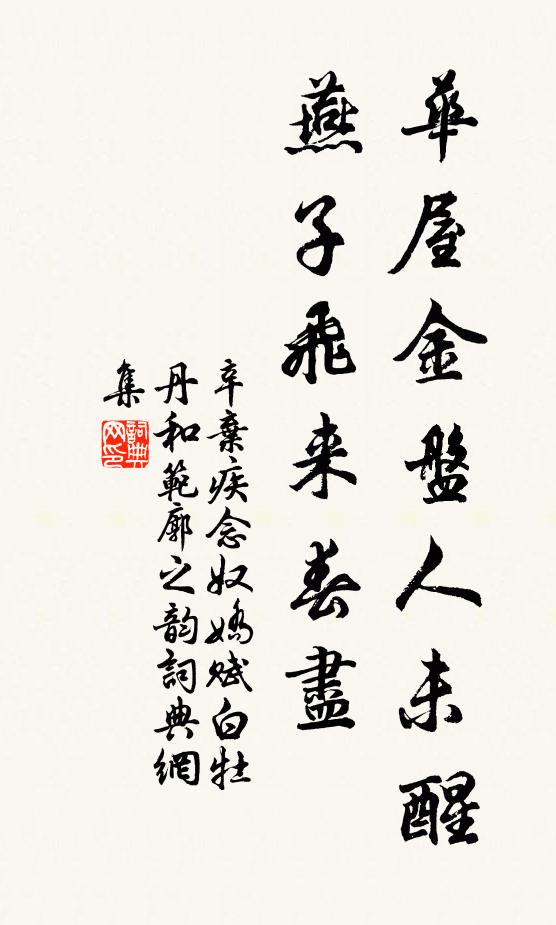 華屋金盤人未醒
燕子飛来春盡
辛棄疾念奴嬌賦白牡
丹和範廓之韵詞典網
集
詞典網印